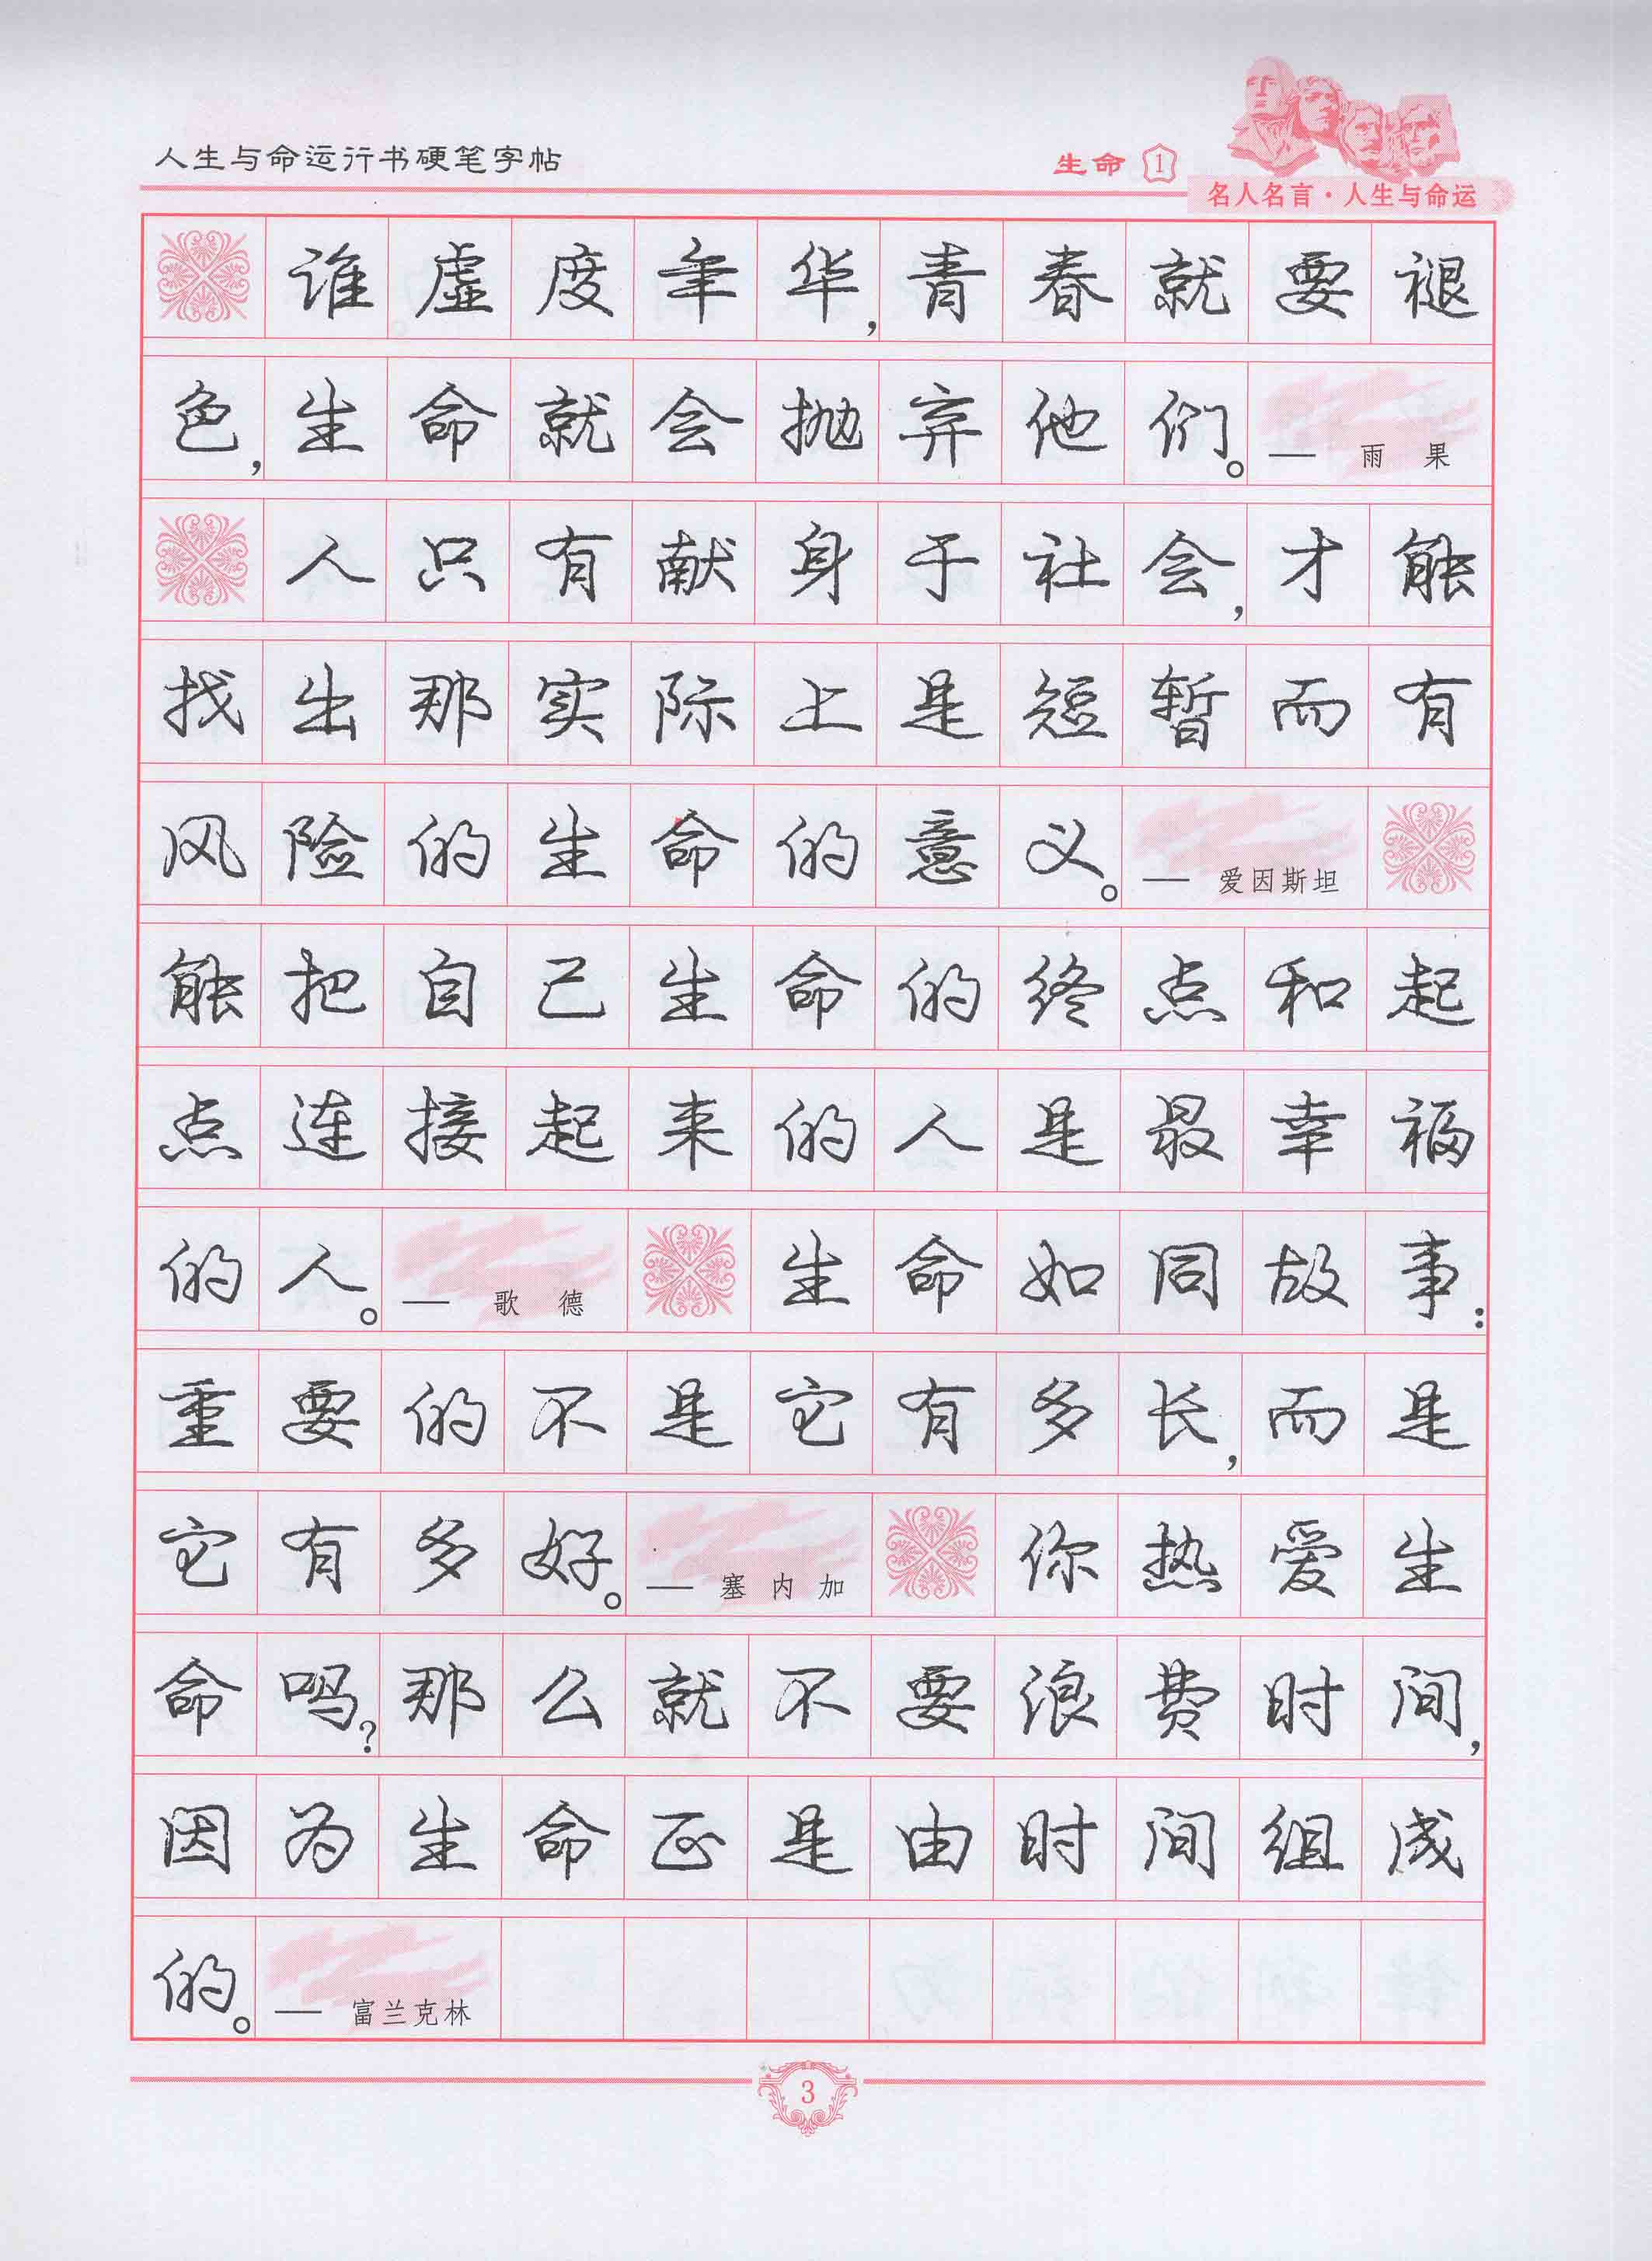 人生与命运行书硬笔字帖
生命 1
名人名言·人生与命运
谁虚度年华,青春就要褪
色,生命就会抛弃他们。——雨果
人只有献身于社会,才能
找出那实际上是短暂而有
风险的生命的意义。——爱因斯坦
能把自己生命的终点和起
点连接起来的人是最幸福
的人。——歌德 生命如同故事:
重要的不是它有多长,而是
它有多好。——塞内加 你热爱生
命吗?那么就不要浪费时间,
因为生命正是由时间组成
的。——富兰克林
3